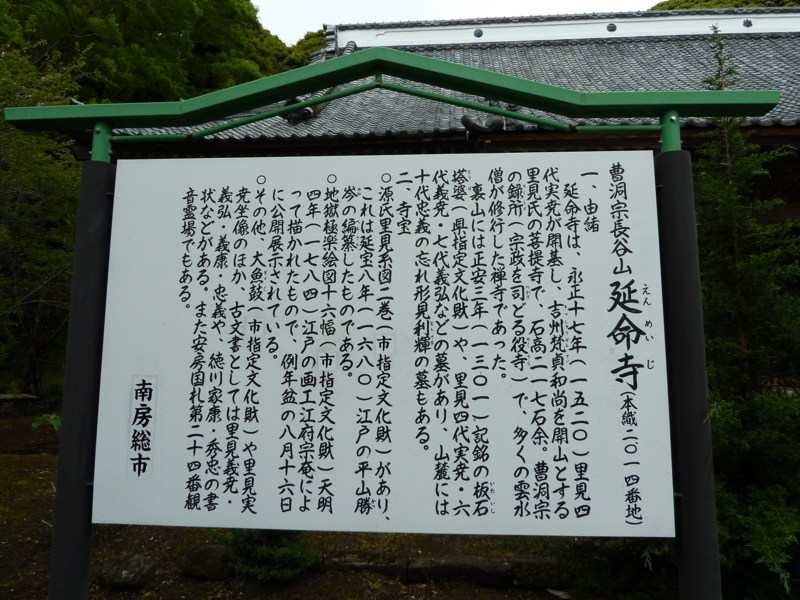 曹洞宗長谷山 延命寺 (本織二〇一四番地)
えん めい じ
一、由緒
延命寺は、永正十七年(一五二〇)里見四
代実尭が開基し、吉州梵貞和尚を開山とする
里見氏の菩提寺で、石高二一七石余。曹洞宗
の録所(宗政を司どる役寺)で、多くの雲水
僧が修行した禅寺であった。
裏山には正安三年(一三〇一)記銘の板石
塔婆(県指定文化財)や、里見四代実尭・六
代義尭・七代義弘などの墓があり、山麓には
十代忠義の忘れ形見利輝の墓もある。
二、寺宝
○源氏里見系図二巻(市指定文化財)があり、
これは延宝八年(一六八〇)江戸の平山勝
岑の編纂したものである。
○地獄極楽絵図十六幅(市指定文化財)天明
四年(一七八四)江戸の画工江府宗庵によ
って描かれたもので、例年盆の八月十六日
に公開展示されている。
○その他、大魚鼓(市指定文化財)や里見実
尭坐像のほか、古文書としては里見義尭・
義弘・義康・忠義や、徳川家康・秀忠の書
状などがある。また安房国札第二十四番観
音霊場でもある。
南房総市